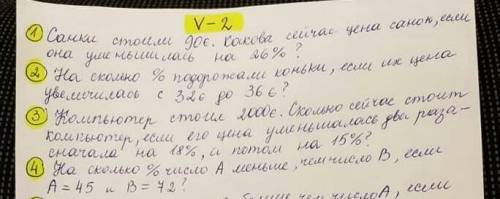 V-2
① Санки стоили 90€. Какова сейчас цена санок, если
она уменьшилась на 26%?
② На сколько % подорожали коньки, если их цена
увеличилась с 32€ до 36€?
③ Компьютер стоил 2000€. Сколько сейчас стоит
компьютер, если его цена уменьшалась два раза-
сначала на 18%, а потом на 15%?
④ На сколько % число А меньше, чем число В, если
А = 45 и В = 72?
больше, чем число А, если